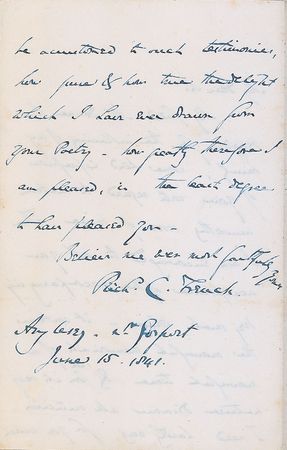 be accustomed to such testimonies,
how pure & how true the delight
which I have ever drawn from
your Poetry – how greatly therefore I
am pleased, in the least degree
to have pleased you –
Believe me ever most faithfully
Yours
Rich. C. Trench.
Anglesey – nr. Gosport
June 15. 1841.